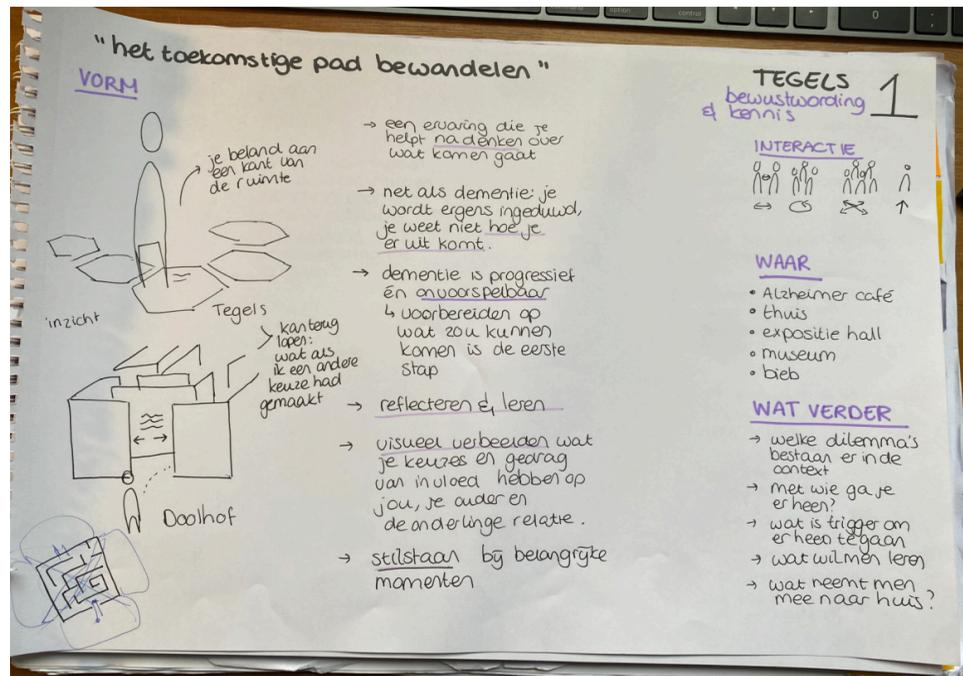 option
control
0
"het toekomstige pad bewandelen"
VORM
je beland aan
een kant van
de ruimte
inzicht
Tegels
kan terug
lopen:
wat als
ik een andere
keuze had
gemaakt
Doolhof
→ een ervaring die je
helpt nadenken over
wat komen gaat
→ net als dementie: je
wordt ergens ingeduwd,
je weet niet hoe je
er uit komt.
→ dementie is progressief
én onvoorspelbaar
↳ voorbereiden op
wat zou kunnen
komen is de eerste
stap
→ reflecteren & leren
→ visueel verbeelden wat
je keuzes en gedrag
van invloed hebben op
jou, je ouder en
de onderlinge relatie.
→ stilstaan bij belangrijke
momenten
TEGELS 1
bewustwording
& kennis
INTERACTIE
WAAR
• Alzheimer café
• thuis
• expositie hall
• museum
• bieb
WAT VERDER
→ welke dilemma's
bestaan er in de
context
→ met wie ga je
er heen?
→ wat is trigger om
er heen te gaan
→ wat wil men leren
→ wat neemt men
mee naar huis?